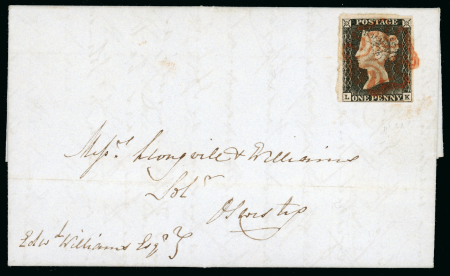 POSTAGE
L K
ONE PENNY
Messrs Longvill & Williams
Solrs
Oswestry
Edwd Williams Esqr